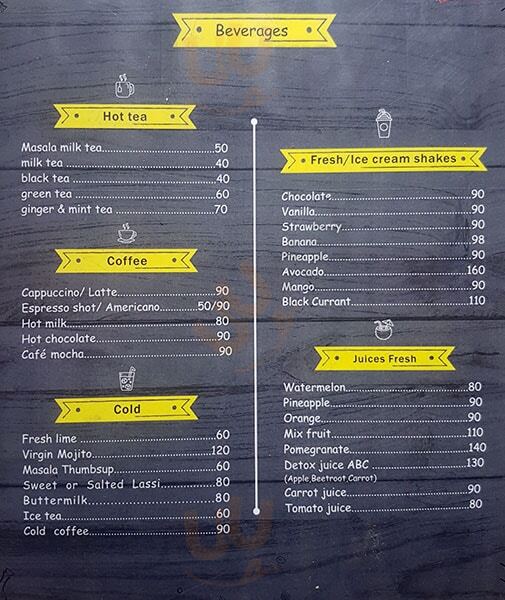 Beverages
Hot tea
Masala milk tea....................50
milk tea ....................40
black tea ....................40
green tea ....................60
ginger & mint tea ....................70
Coffee
Cappuccino/ Latte....................90
Espresso shot/ Americano..........50/90
Hot milk....................80
Hot chocolate....................90
Café mocha....................90
Cold
Fresh lime ....................60
Virgin Mojito....................120
Masala Thumbsup....................60
Sweet or Salted Lassi..........80
Buttermilk....................80
Ice tea....................60
Cold coffee....................90
Fresh/Ice cream shakes
Chocolate....................90
Vanilla....................90
Strawberry....................90
Banana....................98
Pineapple....................90
Avocado....................160
Mango....................90
Black Currant....................110
Juices Fresh
Watermelon....................80
Pineapple....................90
Orange....................90
Mix fruit....................110
Pomegranate....................140
Detox juice ABC ....................130
(Apple,Beetroot,Carrot)
Carrot juice....................90
Tomato juice....................80